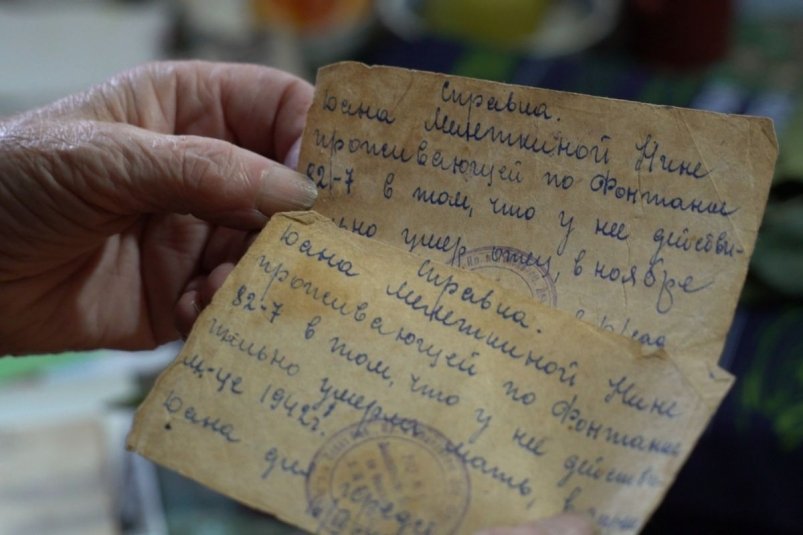 Справка.
Дана Минеткиной Нине
проживающей по Фонтанке
82-7 в том, что у нее действи-
льно умер отец, в ноябре
Справка.
Дана Минеткиной Нине
проживающей по Фонтанке
82-7 в том, что у нее действи-
тельно умерла мать, в
м-це 1942г.
Дана для